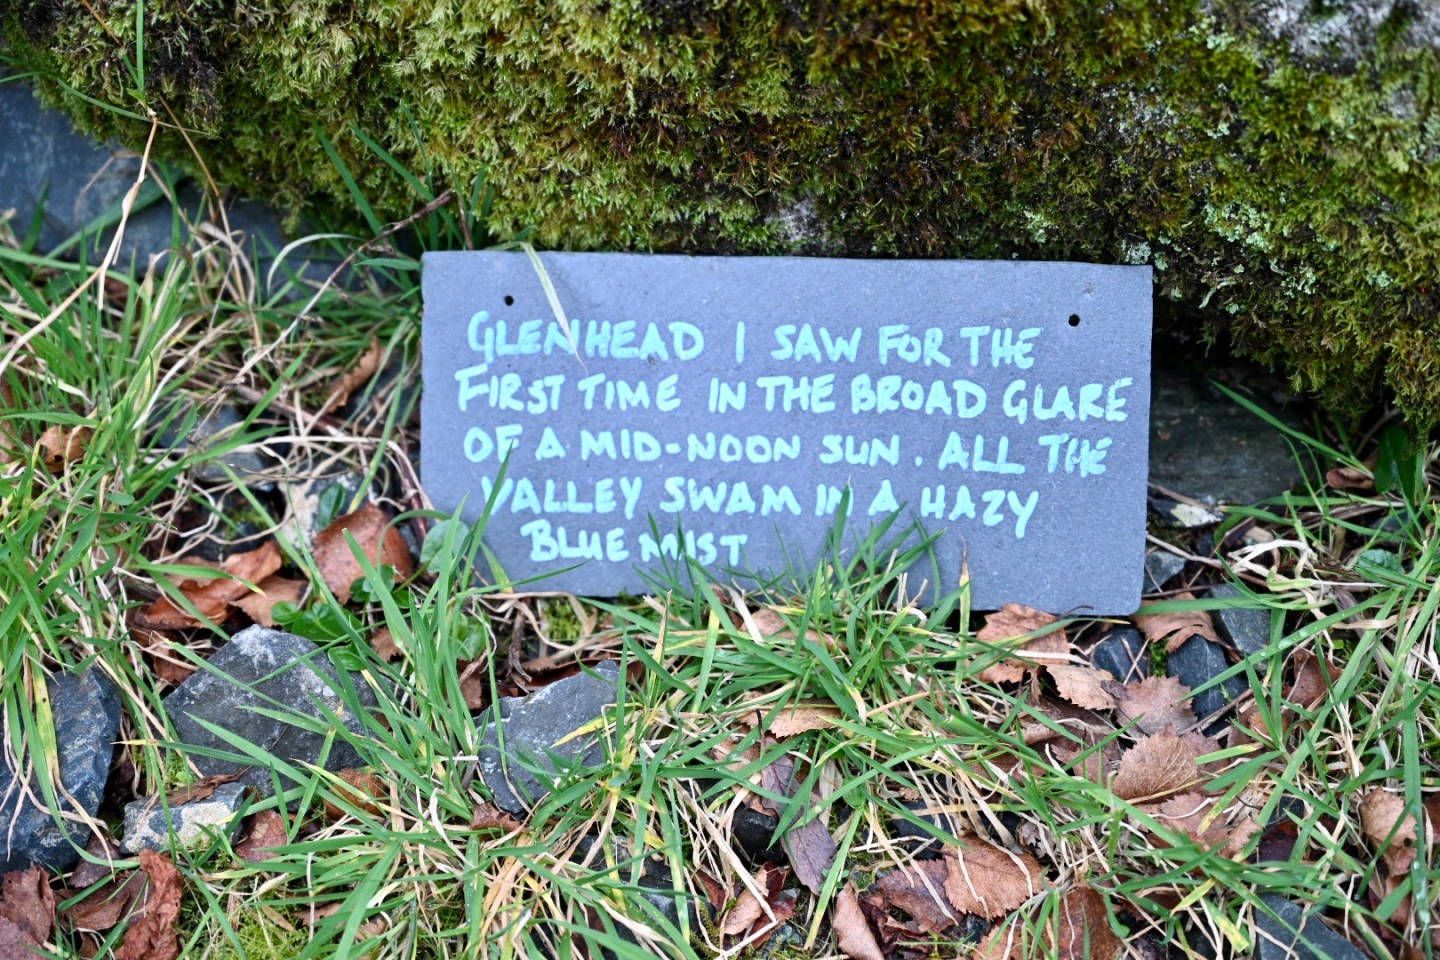 GLENHEAD I SAW FOR THE
FIRST TIME IN THE BROAD GLARE
OF A MID-NOON SUN. ALL THE
VALLEY SWAM IN A HAZY
BLUE MIST